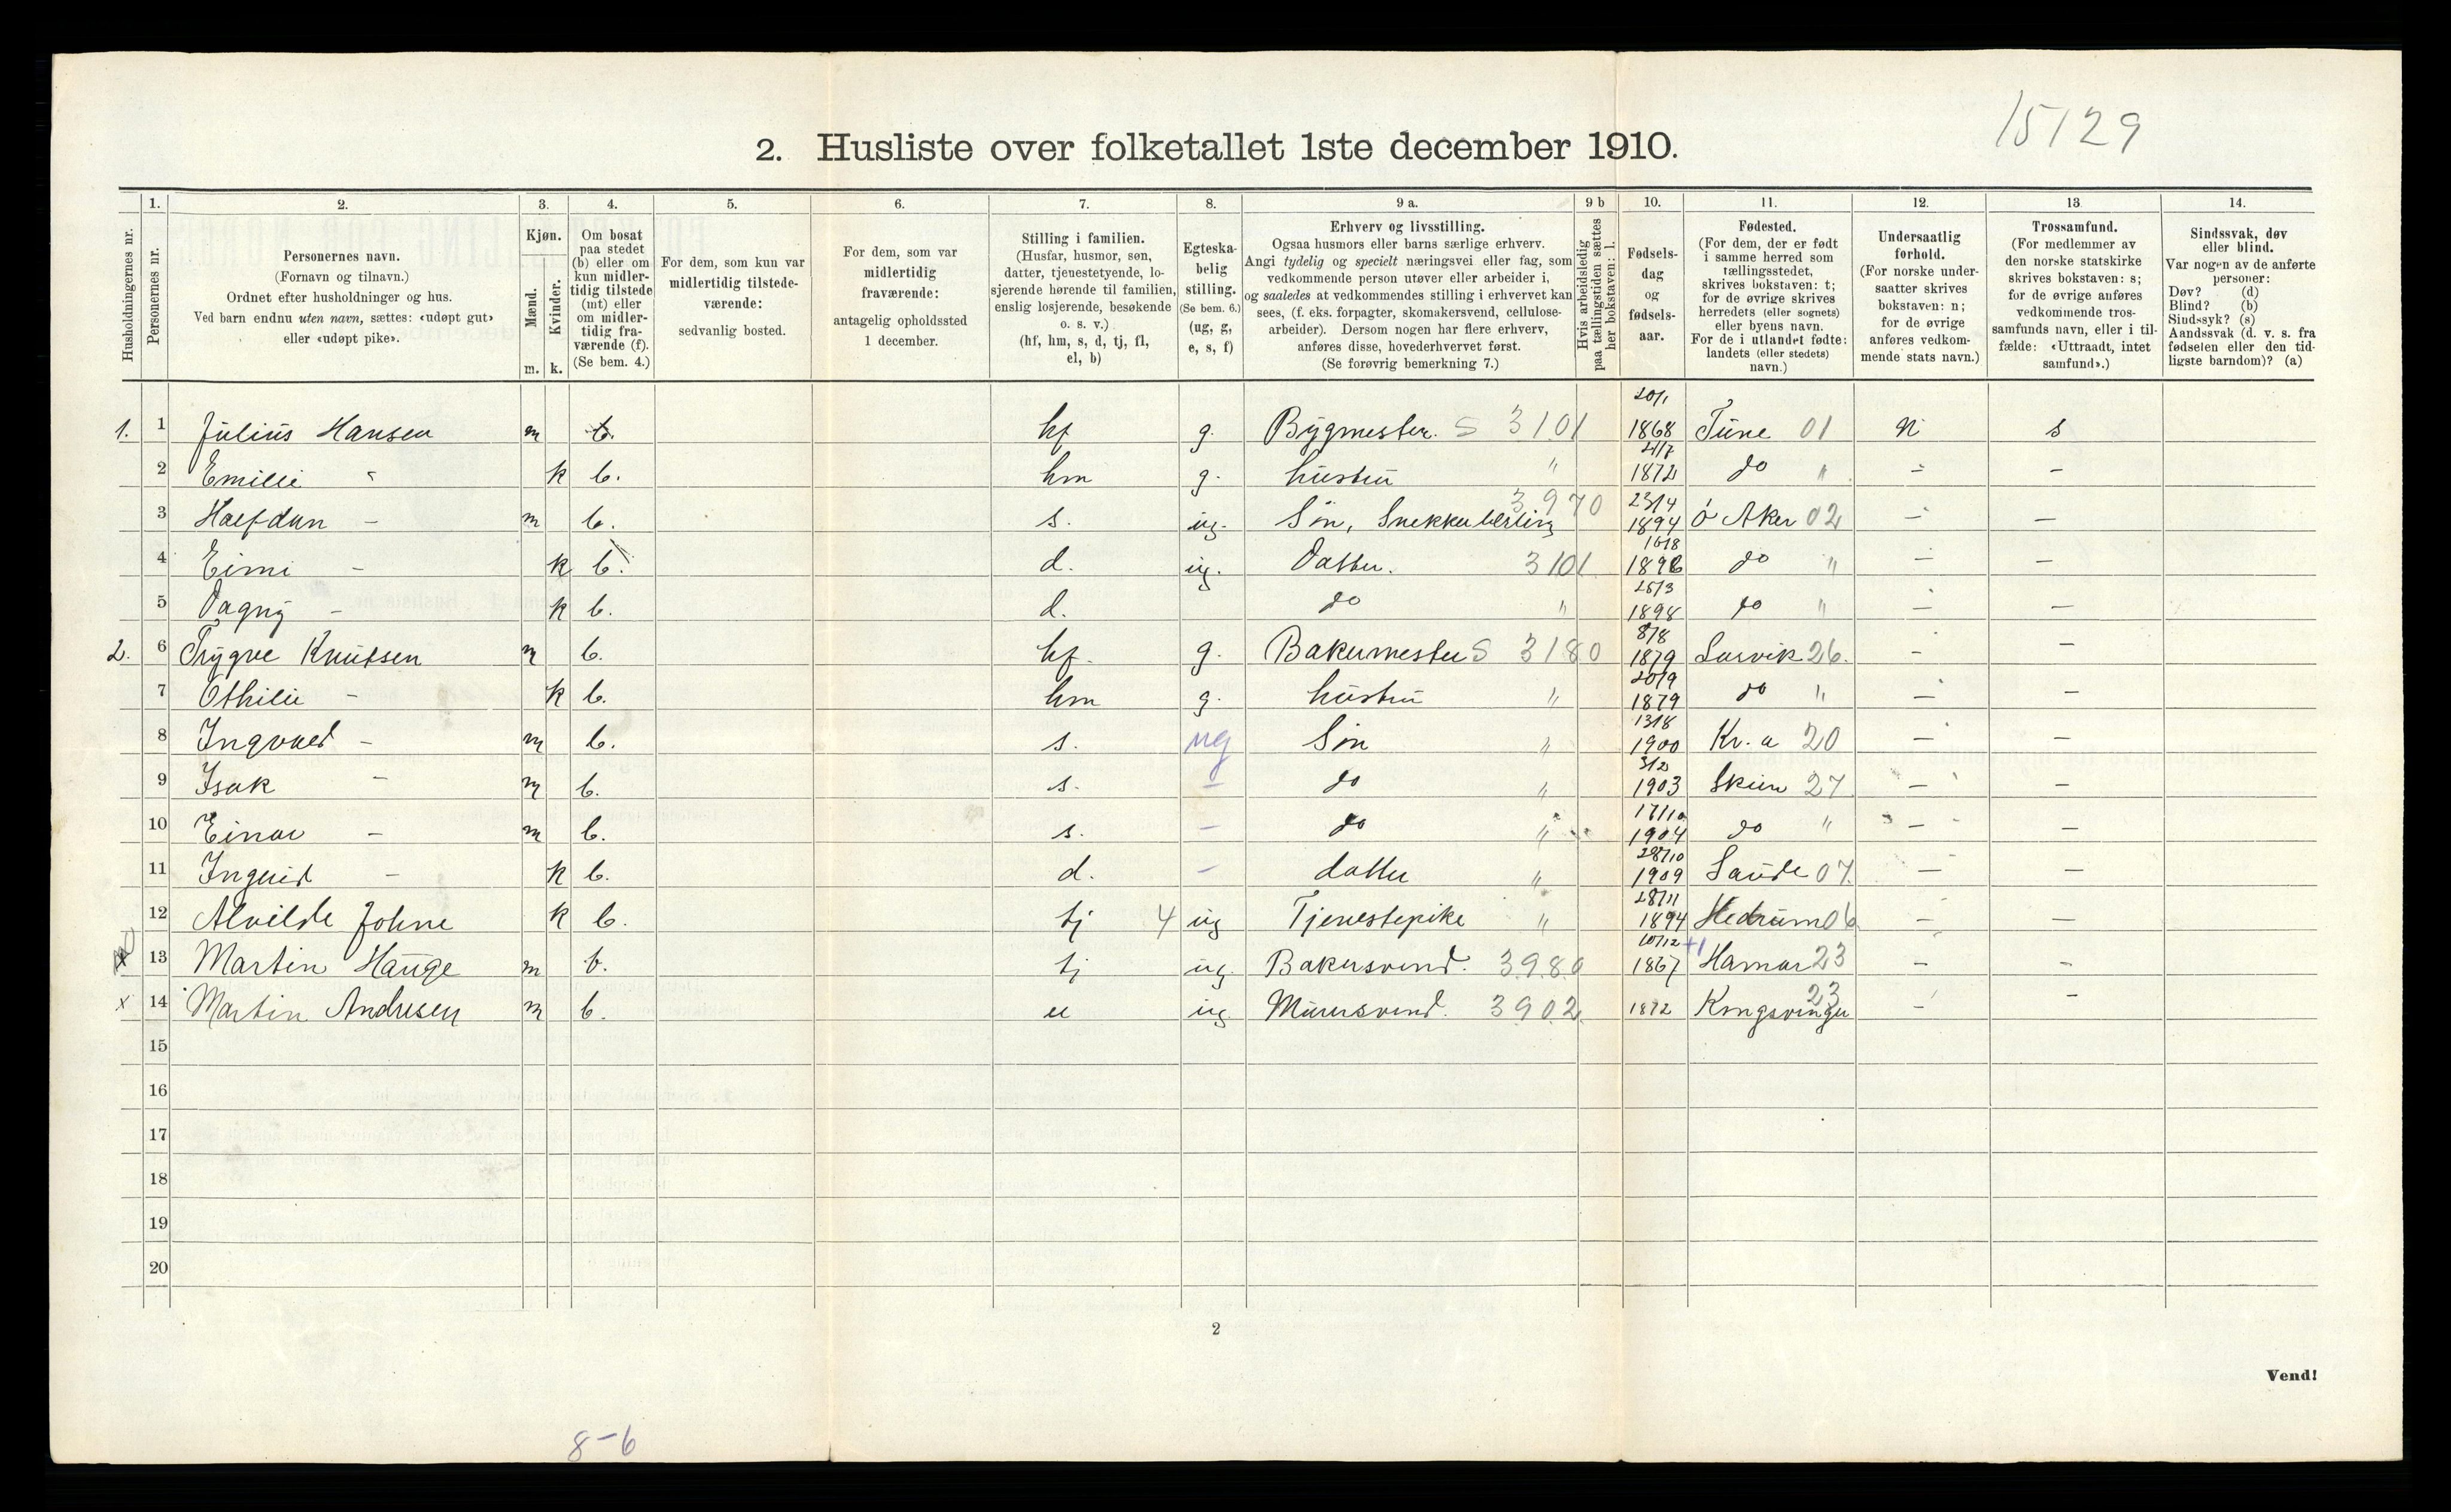 15129
2. Husliste over folketallet 1ste december 1910.
Husholdningernes nr.
1. Personernes nr.
2. Personernes navn.
(Fornavn og tilnavn.)
Ordnet efter husholdninger og hus.
Ved barn endnu uten navn, sættes: «udøpt gut»
eller «udøpt pike».
3. Kjøn.
Mænd. Kvinder.
m. k.
4. Om bosat
paa stedet
(b) eller om
kun midler-
tidig tilstede
(mt) eller
om midler-
tidig fra-
værende (f).
(Se bem. 4.)
5. For dem, som kun var
midlertidig tilstede-
værende:
sedvanlig bosted.
6. For dem, som var
midlertidig
fraværende:
antagelig opholdssted
1 december.
7. Stilling i familien.
(Husfar, husmor, søn,
datter, tjenestetyende, lo-
sjerende hørende til familien,
enslig losjerende, besøkende
o. s. v.)
(hf, hm, s, d, tj, fl,
el, b)
8. Egteska-
belig
stilling.
(Se bem. 6.)
(ug, g,
e, s, f)
9 a. Erhverv og livsstilling.
Ogsaa husmors eller barns særlige erhverv.
Angi tydelig og specielt næringsvei eller fag, som
vedkommende person utøver eller arbeider i,
og saaledes at vedkommendes stilling i erhvervet kan
sees, (f. eks. forpagter, skomakersvend, cellulose-
arbeider). Dersom nogen har flere erhverv,
anføres disse, hovederhvervet først.
(Se forøvrig bemerkning 7.)
9 b Hvis arbeidsledig
paa tællingstiden sættes
her bokstaven: l.
10. Fødsels-
dag
og
fødsels-
aar.
11. Fødested.
(For dem, der er født
i samme herred som
tællingsstedet,
skrives bokstaven: t;
for de øvrige skrives
herredets (eller sognets)
eller byens navn.
For de i utlandet fødte:
landets (eller stedets)
navn.)
12. Undersaatlig
forhold.
(For norske under-
saatter skrives
bokstaven: n;
for de øvrige
anføres vedkom-
mende stats navn.)
13 Trossamfund.
(For medlemmer av
den norske statskirke
skrives bokstaven: s;
for de øvrige anføres
vedkommende tros-
samfunds navn, eller i til-
fælde: «Uttraadt, intet
samfund».)
14. Sindssvak, døv
eller blind.
Var nogen av de anførte
personer:
Døv? (d)
Blind? (b)
Sindssyk? (s)
Aandssvak (d. v. s. fra
fødselen eller den tid-
ligste barndom)? (a)
1. 1 Julius Hansen m b. hf g. Bygmester. S 3101 20/1 1868 Tune 01 n s
2 Emilie " k b. hm g. hustru " 4/7 1872 do " - -
3 Halfdan - m b. s. ug. Søn, Snekkerlærling 3970 23/4 1894 Ø Aker 02 - -
4 Eimi - k b. d. ug. Datter. 3101 16/8 1896 do " - -
5 Dagny - k b. d. do " 25/3 1898 do " - -
2. 6 Trygve Knutsen m b. hf. g. Bakermester S 3180 8/8 1879 Larvik 26. - -
7 Othilie - k b. hm g. hustru " 20/9 1879 do " - -
8 Ingvald - m b. s. ug Søn " 13/8 1900 Kr.a 20 - -
9 Isak - m b. s. - do " 3/2 1903 Skien 27 - -
10 Einar - m b. s. - do " 17/10 1904 do " - -
11 Ingrid - k b. d. - datter " 28/10 1909 Saude 07. - -
12 Alvilde Johne k b. tj 4 ug Tjenestepike " 28/11 1894 Hedrum 06 - -
x 13 Martin Hauge m b. tj ug. Bakersvend. 3980 10/12 1867 +1 Hamar 23 - -
x 14 Martin Andresen m b. el ug. Murersvend. 3902 1872 Kongsvinger 23 - -
15
16
17
18
19
20
2
Vend!
8-6